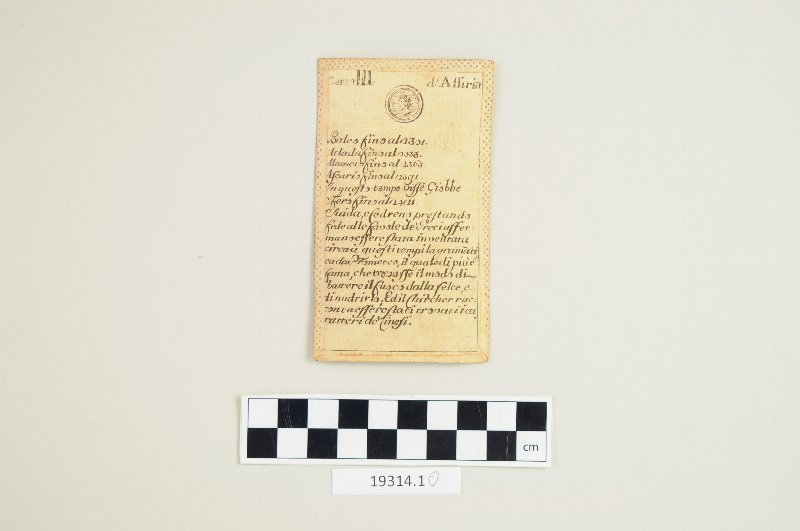 III d'Assiria
Baleo fino al 2301.
fino al
Mameo fino al 2363.
fino al 2391.
In questo tempo visse Giobbe
fino al
Suida, e Cedreno prestando
fede alle favole de Greci affer-
mano essere stata inventata
circa à questi tempi la gramati
ca da il quale di più è
fama, che trovasse il modo di
battere il fuoco dalla selce, e
di nudrirlo. Ed il Chircher rac-
conta essere stati trovati i ca
ratteri de Cinesi.
cm
19314.10